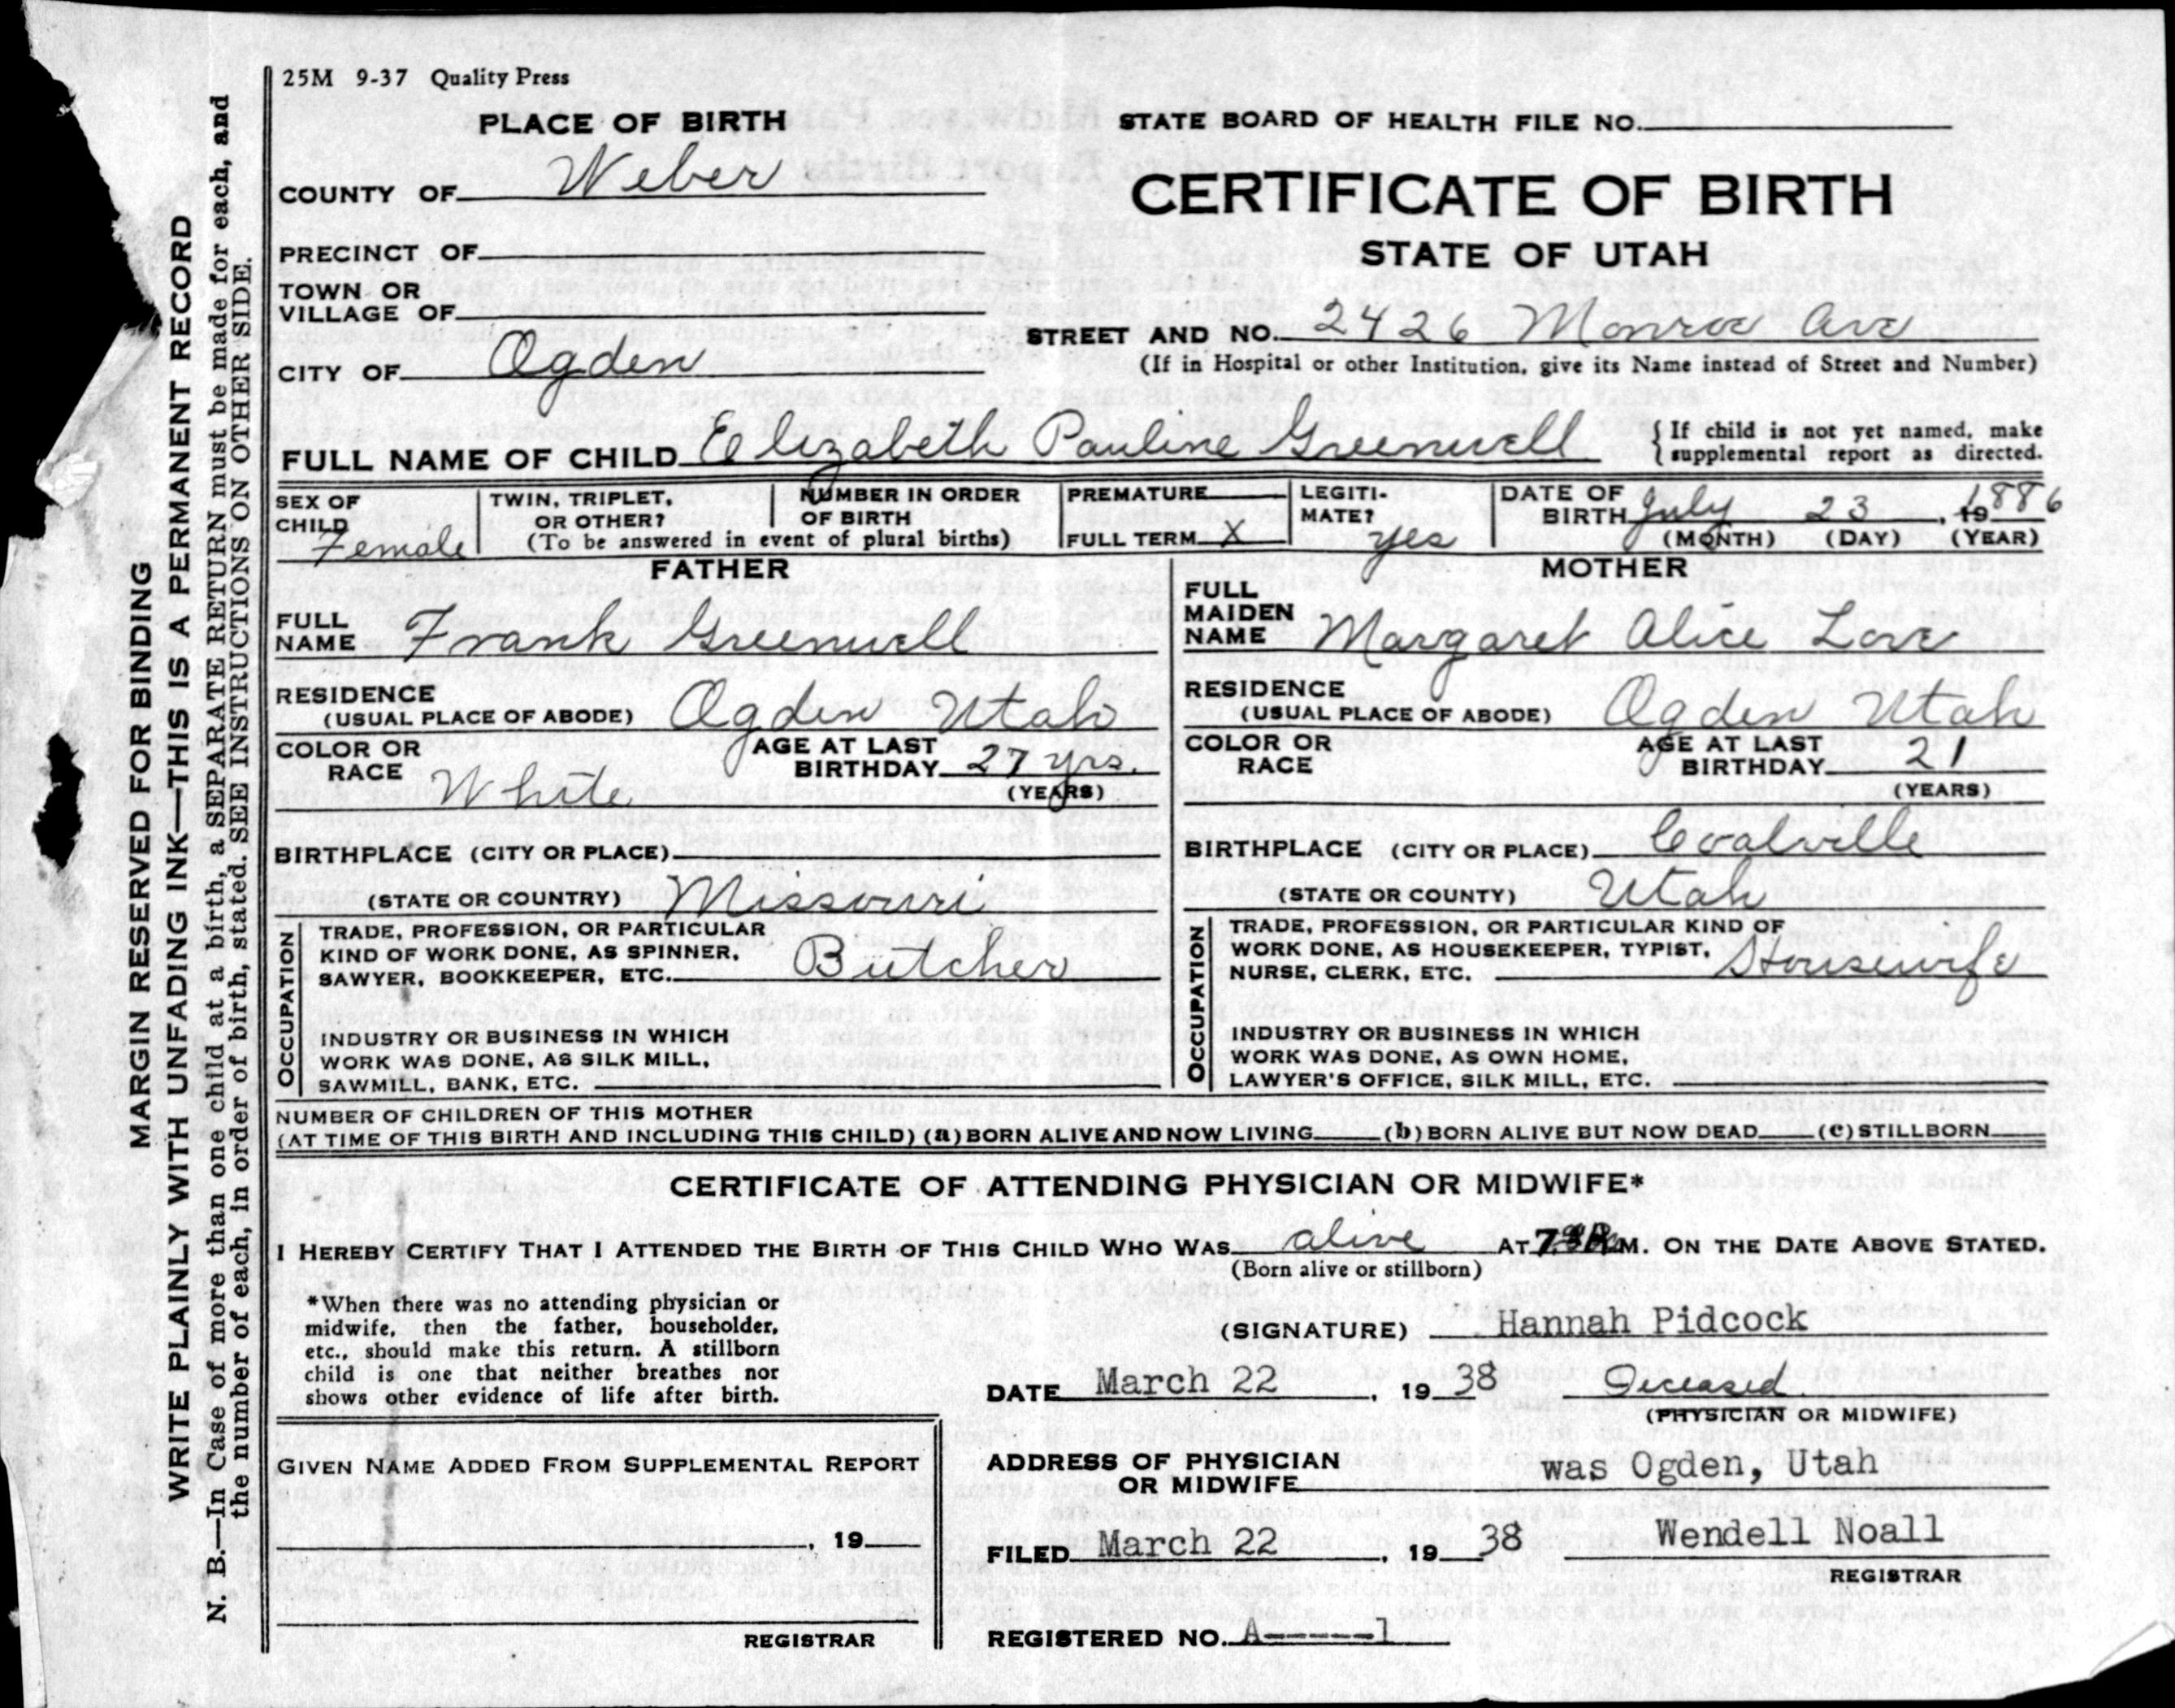 25M 9-37 Quality Press
PLACE OF BIRTH
STATE BOARD OF HEALTH FILE NO.
COUNTY OF Weber
CERTIFICATE OF BIRTH
PRECINCT OF
STATE OF UTAH
TOWN OR
VILLAGE OF
STREET AND NO. 2426 Monroe Ave
(If in Hospital or other Institution, give its Name instead of Street and Number)
CITY OF Ogden
FULL NAME OF CHILD Elizabeth Pauline Greenwell
{If child is not yet named, make
supplemental report as directed.
SEX OF
CHILD
Female
TWIN, TRIPLET,
OR OTHER?
NUMBER IN ORDER
OF BIRTH
(To be answered in event of plural births)
PREMATURE
FULL TERM X
LEGITI-
MATE?
yes
DATE OF
BIRTH July 23, 19 1886
(MONTH) (DAY) (YEAR)
FATHER
FULL
NAME Frank Greenwell
RESIDENCE
(USUAL PLACE OF ABODE) Ogden Utah
COLOR OR
RACE White
AGE AT LAST
BIRTHDAY 27 yrs.
(YEARS)
BIRTHPLACE (CITY OR PLACE)
(STATE OR COUNTRY) Missouri
OCCUPATION
TRADE, PROFESSION, OR PARTICULAR
KIND OF WORK DONE, AS SPINNER,
SAWYER, BOOKKEEPER, ETC. Butcher
INDUSTRY OR BUSINESS IN WHICH
WORK WAS DONE, AS SILK MILL,
SAWMILL, BANK, ETC.
MOTHER
FULL
MAIDEN
NAME Margaret Alice Love
RESIDENCE
(USUAL PLACE OF ABODE) Ogden Utah
COLOR OR
RACE
AGE AT LAST
BIRTHDAY 21
(YEARS)
BIRTHPLACE (CITY OR PLACE) Coalville
(STATE OR COUNTY) Utah
OCCUPATION
TRADE, PROFESSION, OR PARTICULAR KIND OF
WORK DONE, AS HOUSEKEEPER, TYPIST,
NURSE, CLERK, ETC. Housewife
INDUSTRY OR BUSINESS IN WHICH
WORK WAS DONE, AS OWN HOME,
LAWYER'S OFFICE, SILK MILL, ETC.
NUMBER OF CHILDREN OF THIS MOTHER
(AT TIME OF THIS BIRTH AND INCLUDING THIS CHILD) (a) BORN ALIVE AND NOW LIVING (b) BORN ALIVE BUT NOW DEAD (c) STILLBORN
CERTIFICATE OF ATTENDING PHYSICIAN OR MIDWIFE*
I HEREBY CERTIFY THAT I ATTENDED THE BIRTH OF THIS CHILD WHO WAS alive AT M. ON THE DATE ABOVE STATED.
(Born alive or stillborn)
*When there was no attending physician or
midwife, then the father, householder,
etc., should make this return. A stillborn
child is one that neither breathes nor
shows other evidence of life after birth.
(SIGNATURE) Hannah Pidcock
DATE March 22, 19 38 Deceased
(PHYSICIAN OR MIDWIFE)
GIVEN NAME ADDED FROM SUPPLEMENTAL REPORT
, 19
REGISTRAR
ADDRESS OF PHYSICIAN
OR MIDWIFE was Ogden, Utah
FILED March 22, 19 38 Wendell Noall
REGISTRAR
REGISTERED NO. A------1
MARGIN RESERVED FOR BINDING
WRITE PLAINLY WITH UNFADING INK—THIS IS A PERMANENT RECORD
N. B.—In Case of more than one child at a birth, a SEPARATE RETURN must be made for each, and
the number of each, in order of birth, stated. SEE INSTRUCTIONS ON OTHER SIDE.